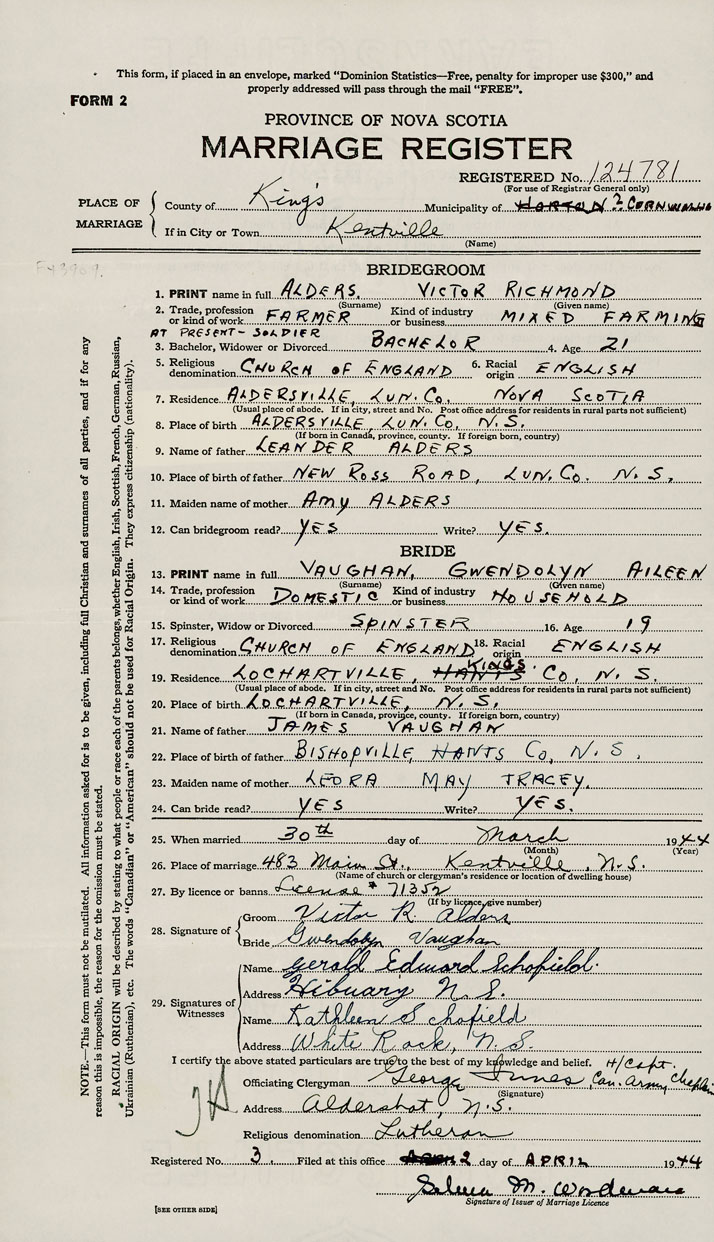 This form, if placed in an envelope, marked "Dominion Statistics—Free, penalty for improper use $300," and
properly addressed will pass through the mail "FREE".
FORM 2
PROVINCE OF NOVA SCOTIA
MARRIAGE REGISTER
REGISTERED No. 124781
(For use of Registrar General only)
PLACE OF MARRIAGE
County of King's Municipality of HORTON ? CORNWALLIS
If in City or Town Kentville
(Name)
BRIDEGROOM
1. PRINT name in full ALDERS, VICTOR RICHMOND
(Surname) (Given name)
2. Trade, profession or kind of work FARMER Kind of industry or business MIXED FARMING
AT PRESENT - SOLDIER
3. Bachelor, Widower or Divorced BACHELOR 4. Age 21
5. Religious denomination CHURCH OF ENGLAND 6. Racial origin ENGLISH
7. Residence ALDERSVILLE, LUN. CO., NOVA SCOTIA
(Usual place of abode. If in city, street and No. Post office address for residents in rural parts not sufficient)
8. Place of birth ALDERSVILLE, LUN. CO, N.S.
(If born in Canada, province, county. If foreign born, country)
9. Name of father LEANDER ALDERS
10. Place of birth of father NEW ROSS ROAD, LUN. CO. N.S.
11. Maiden name of mother AMY ALDERS
12. Can bridegroom read? YES Write? YES.
BRIDE
13. PRINT name in full VAUGHAN, GWENDOLYN AILEEN
(Surname) (Given name)
14. Trade, profession or kind of work DOMESTIC Kind of industry or business HOUSEHOLD
15. Spinster, Widow or Divorced SPINSTER 16. Age 19
17. Religious denomination CHURCH OF ENGLAND 18. Racial origin ENGLISH
KINGS
19. Residence LOCHARTVILLE, HANTS CO, N.S.
(Usual place of abode. If in city, street and No. Post office address for residents in rural parts not sufficient)
20. Place of birth LOCHARTVILLE, N.S.
(If born in Canada, province, county. If foreign born, country)
21. Name of father JAMES VAUGHAN
22. Place of birth of father BISHOPVILLE, HANTS CO, N.S.
23. Maiden name of mother LEORA MAY TRACEY.
24. Can bride read? YES Write? YES.
25. When married 30th day of March 1944
(Month) (Year)
26. Place of marriage 483 Main St., Kentville, N.S.
(Name of church or clergyman's residence or location of dwelling house)
27. By licence or banns License # 71352
(If by licence, give number)
28. Signature of
Groom Victor R. Alders
Bride Gwendolyn Vaughan
29. Signatures of Witnesses
Name Gerald Edward Schofield.
Address N.S.
Name Kathleen Schofield
Address White Rock, N.S.
I certify the above stated particulars are true to the best of my knowledge and belief. H/Capt.
Officiating Clergyman George Innes, Can. Army Chaplain
(Signature)
Address Aldershot, N.S.
Religious denomination Lutheran
Registered No. 3. Filed at this office 2 day of APRIL 1944
Signature of Issuer of Marriage Licence
[SEE OTHER SIDE]
NOTE.—This form must not be mutilated. All information asked for is to be given, including full Christian and surnames of all parties, and if for any
reason this is impossible, the reason for the omission must be stated.
RACIAL ORIGIN will be described by stating to what people or race each of the parents belongs, whether English, Irish, Scottish, French, German, Russian,
Ukrainian (Ruthenian), etc. The words "Canadian" or "American" should not be used for Racial Origin. They express citizenship (nationality).